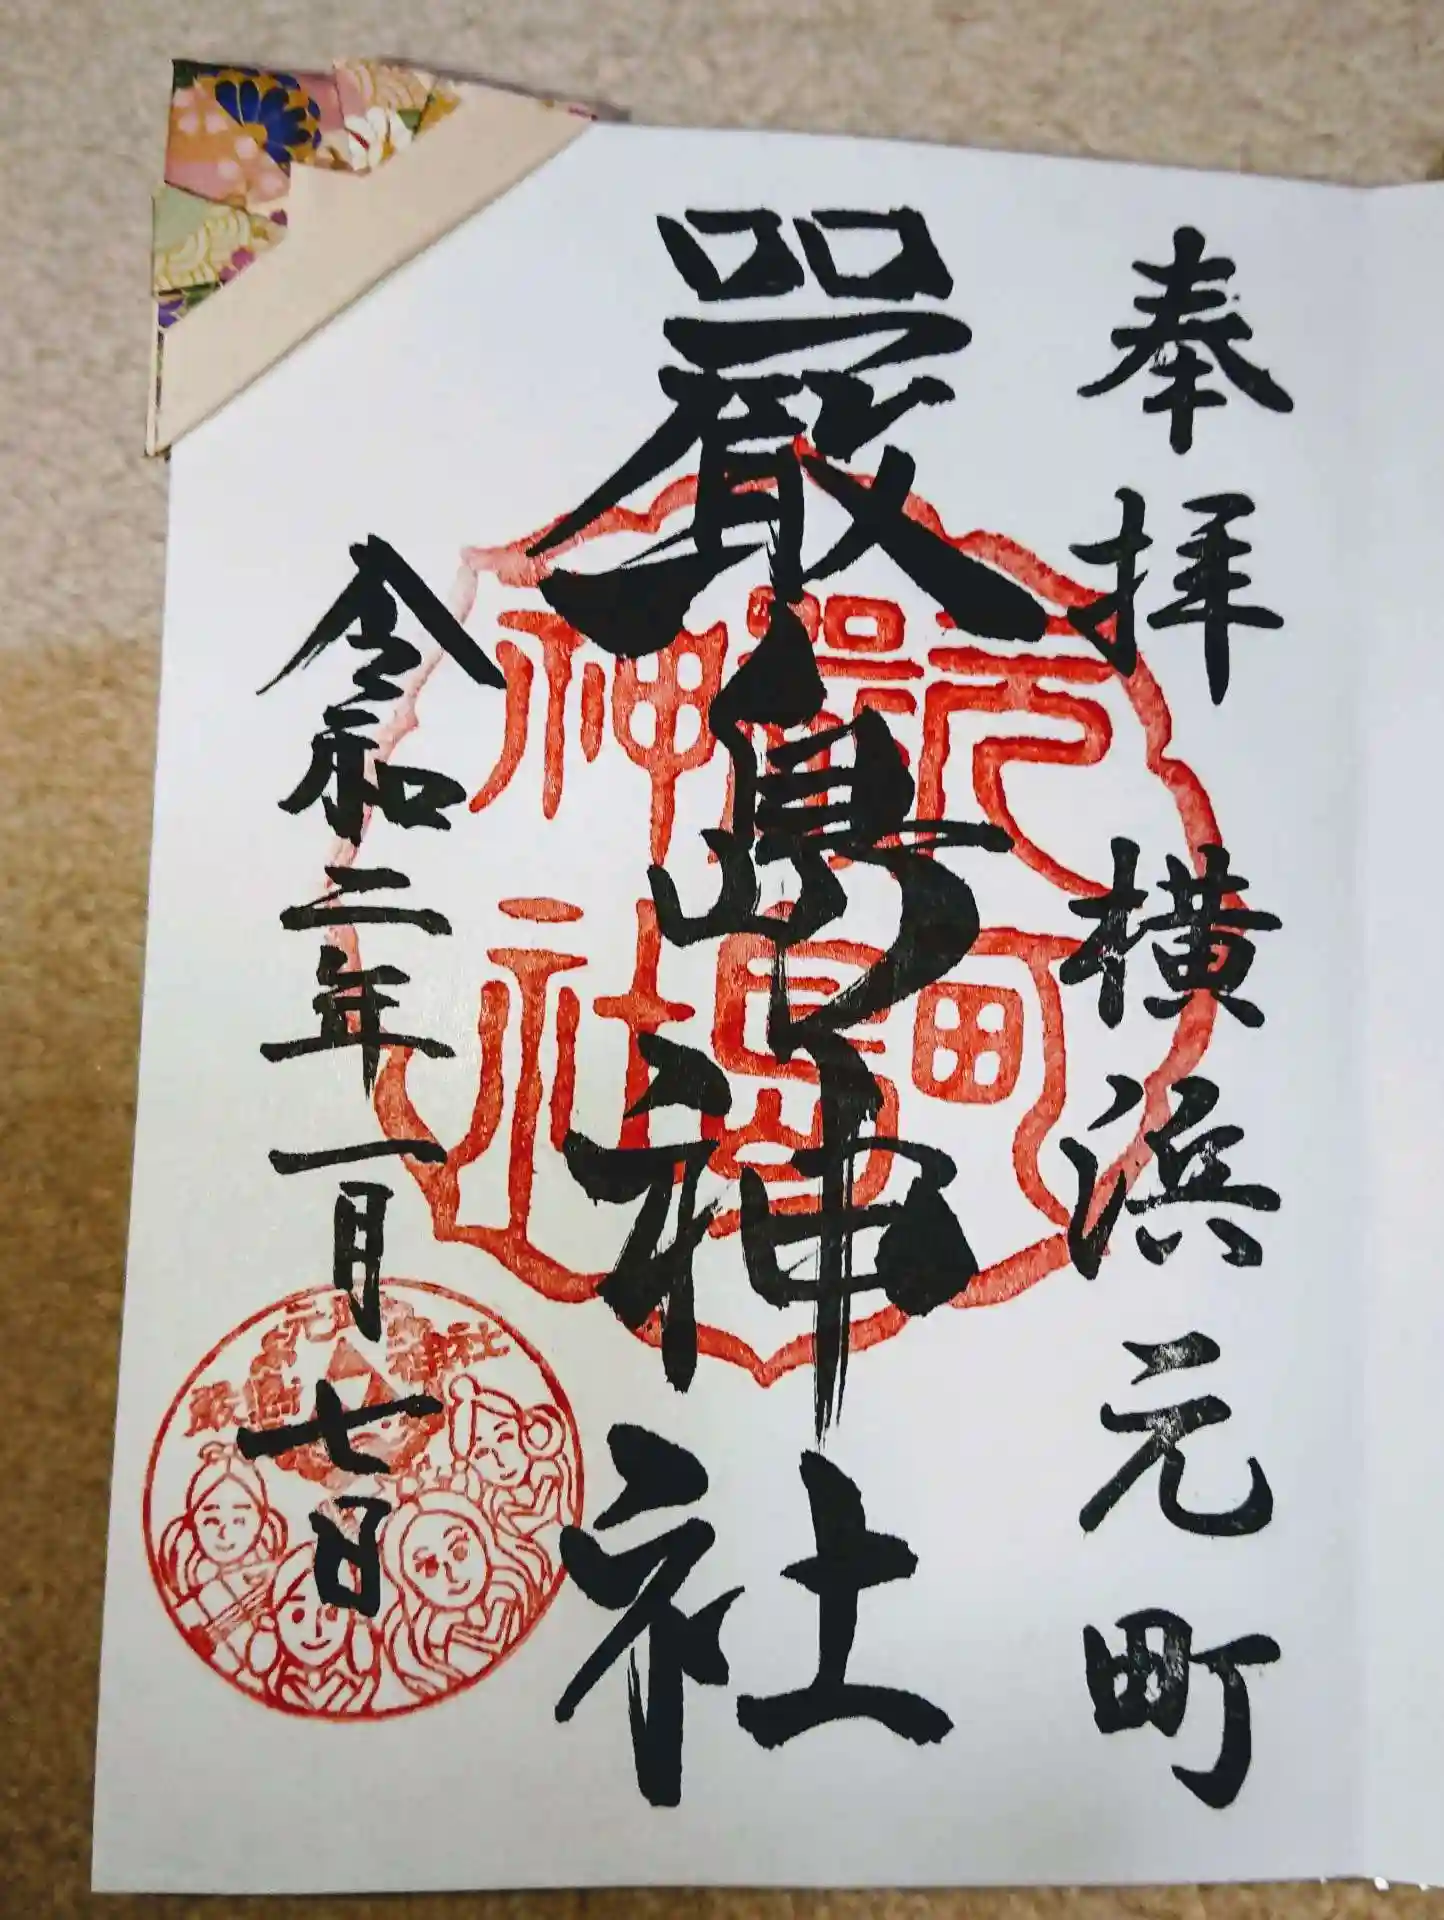 奉拝 横浜元町
嚴島神社
令和二年一月七日
元町
嚴島
神社
元町
嚴島神社